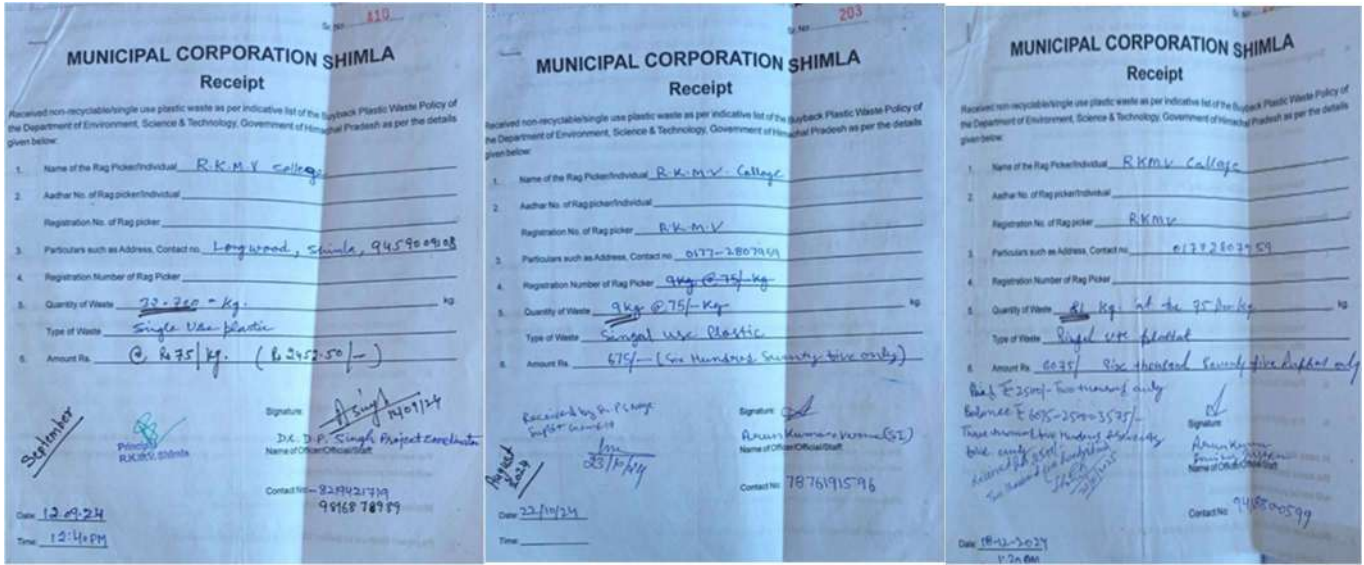 Sr. No. 110
MUNICIPAL CORPORATION SHIMLA
Receipt
Received non-recyclable/single use plastic waste as per indicative list of the Buyback Plastic Waste Policy of
the Department of Environment, Science & Technology, Government of Himachal Pradesh as per the details
given below:
1. Name of the Rag Picker/Individual R.K.M.V College
2. Aadhar No. of Rag picker/Individual
Registration No. of Rag picker
3. Particulars such as Address, Contact no. Longwood, Shimla, 9459009108
4. Registration Number of Rag Picker
5. Quantity of Waste Kg. kg.
Type of Waste Single Use plastic
6. Amount Rs. @ Rs 75/kg. (Rs 2452.50/-)
September
Principal
R.K.M.V. Shimla
Signature: 12/09/24
D.P. Singh Project Coordinator
Name of Officer/Official/Staff:
Contact No:- 8219421719
9816878989
Date: 12.09.24
Time: 12:40 PM
Sr. No. 203
MUNICIPAL CORPORATION SHIMLA
Receipt
Received non-recyclable/single use plastic waste as per indicative list of the Buyback Plastic Waste Policy of
the Department of Environment, Science & Technology, Government of Himachal Pradesh as per the details
given below:
1. Name of the Rag Picker/Individual R.K.M.V. College
2. Aadhar No. of Rag picker/Individual
Registration No. of Rag picker R.K.M.V
3. Particulars such as Address, Contact no. 0177-2807959
4. Registration Number of Rag Picker 9kg @ 75/-kg
5. Quantity of Waste 9kg @ 75/-Kg kg.
Type of Waste Singal use Plastic
6. Amount Rs. 675/- (Six Hundred Seventy five only)
Received by
23/10/24
August
2024
Signature:
Arun Kumar (SI)
Name of Officer/Official/Staff:
Contact No: 7876191596
Date: 22/10/24
Time:
Sr. No.
MUNICIPAL CORPORATION SHIMLA
Receipt
Received non-recyclable/single use plastic waste as per indicative list of the Buyback Plastic Waste Policy of
the Department of Environment, Science & Technology, Government of Himachal Pradesh as per the details
given below:
1. Name of the Rag Picker/Individual RKMV College
2. Aadhar No. of Rag picker/Individual
Registration No. of Rag picker RKMV
3. Particulars such as Address, Contact no. 01772807959
4. Registration Number of Rag Picker
5. Quantity of Waste 81 Kg. at the 75 Per kg kg.
Type of Waste use
6. Amount Rs. 6075/ thousand Seventy five only
Paid ₹ 2500/- Two thousand only
Balance ₹ 6075-2500=3575/-
Three thousand five Hundred Seventy
five only
Signature:
Arun Kumar
Name of Officer/Official/Staff:
Contact No: 9418500599
Date: 18-12-2024